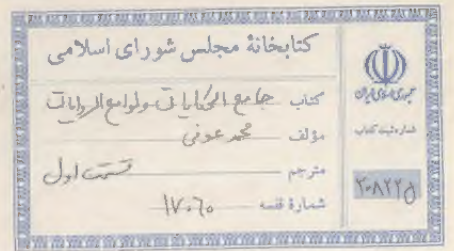 کتابخانهٔ مجلس شورای اسلامی
کتاب جامع الحکایات ولوامع الروایات
مؤلف محمد عوفی
مترجم
قسمت اول
شمارهٔ قفسه ۱۷۰۶۰
جمهوری اسلامی ایران
شماره ثبت کتاب
۲۰۸۲۲۵